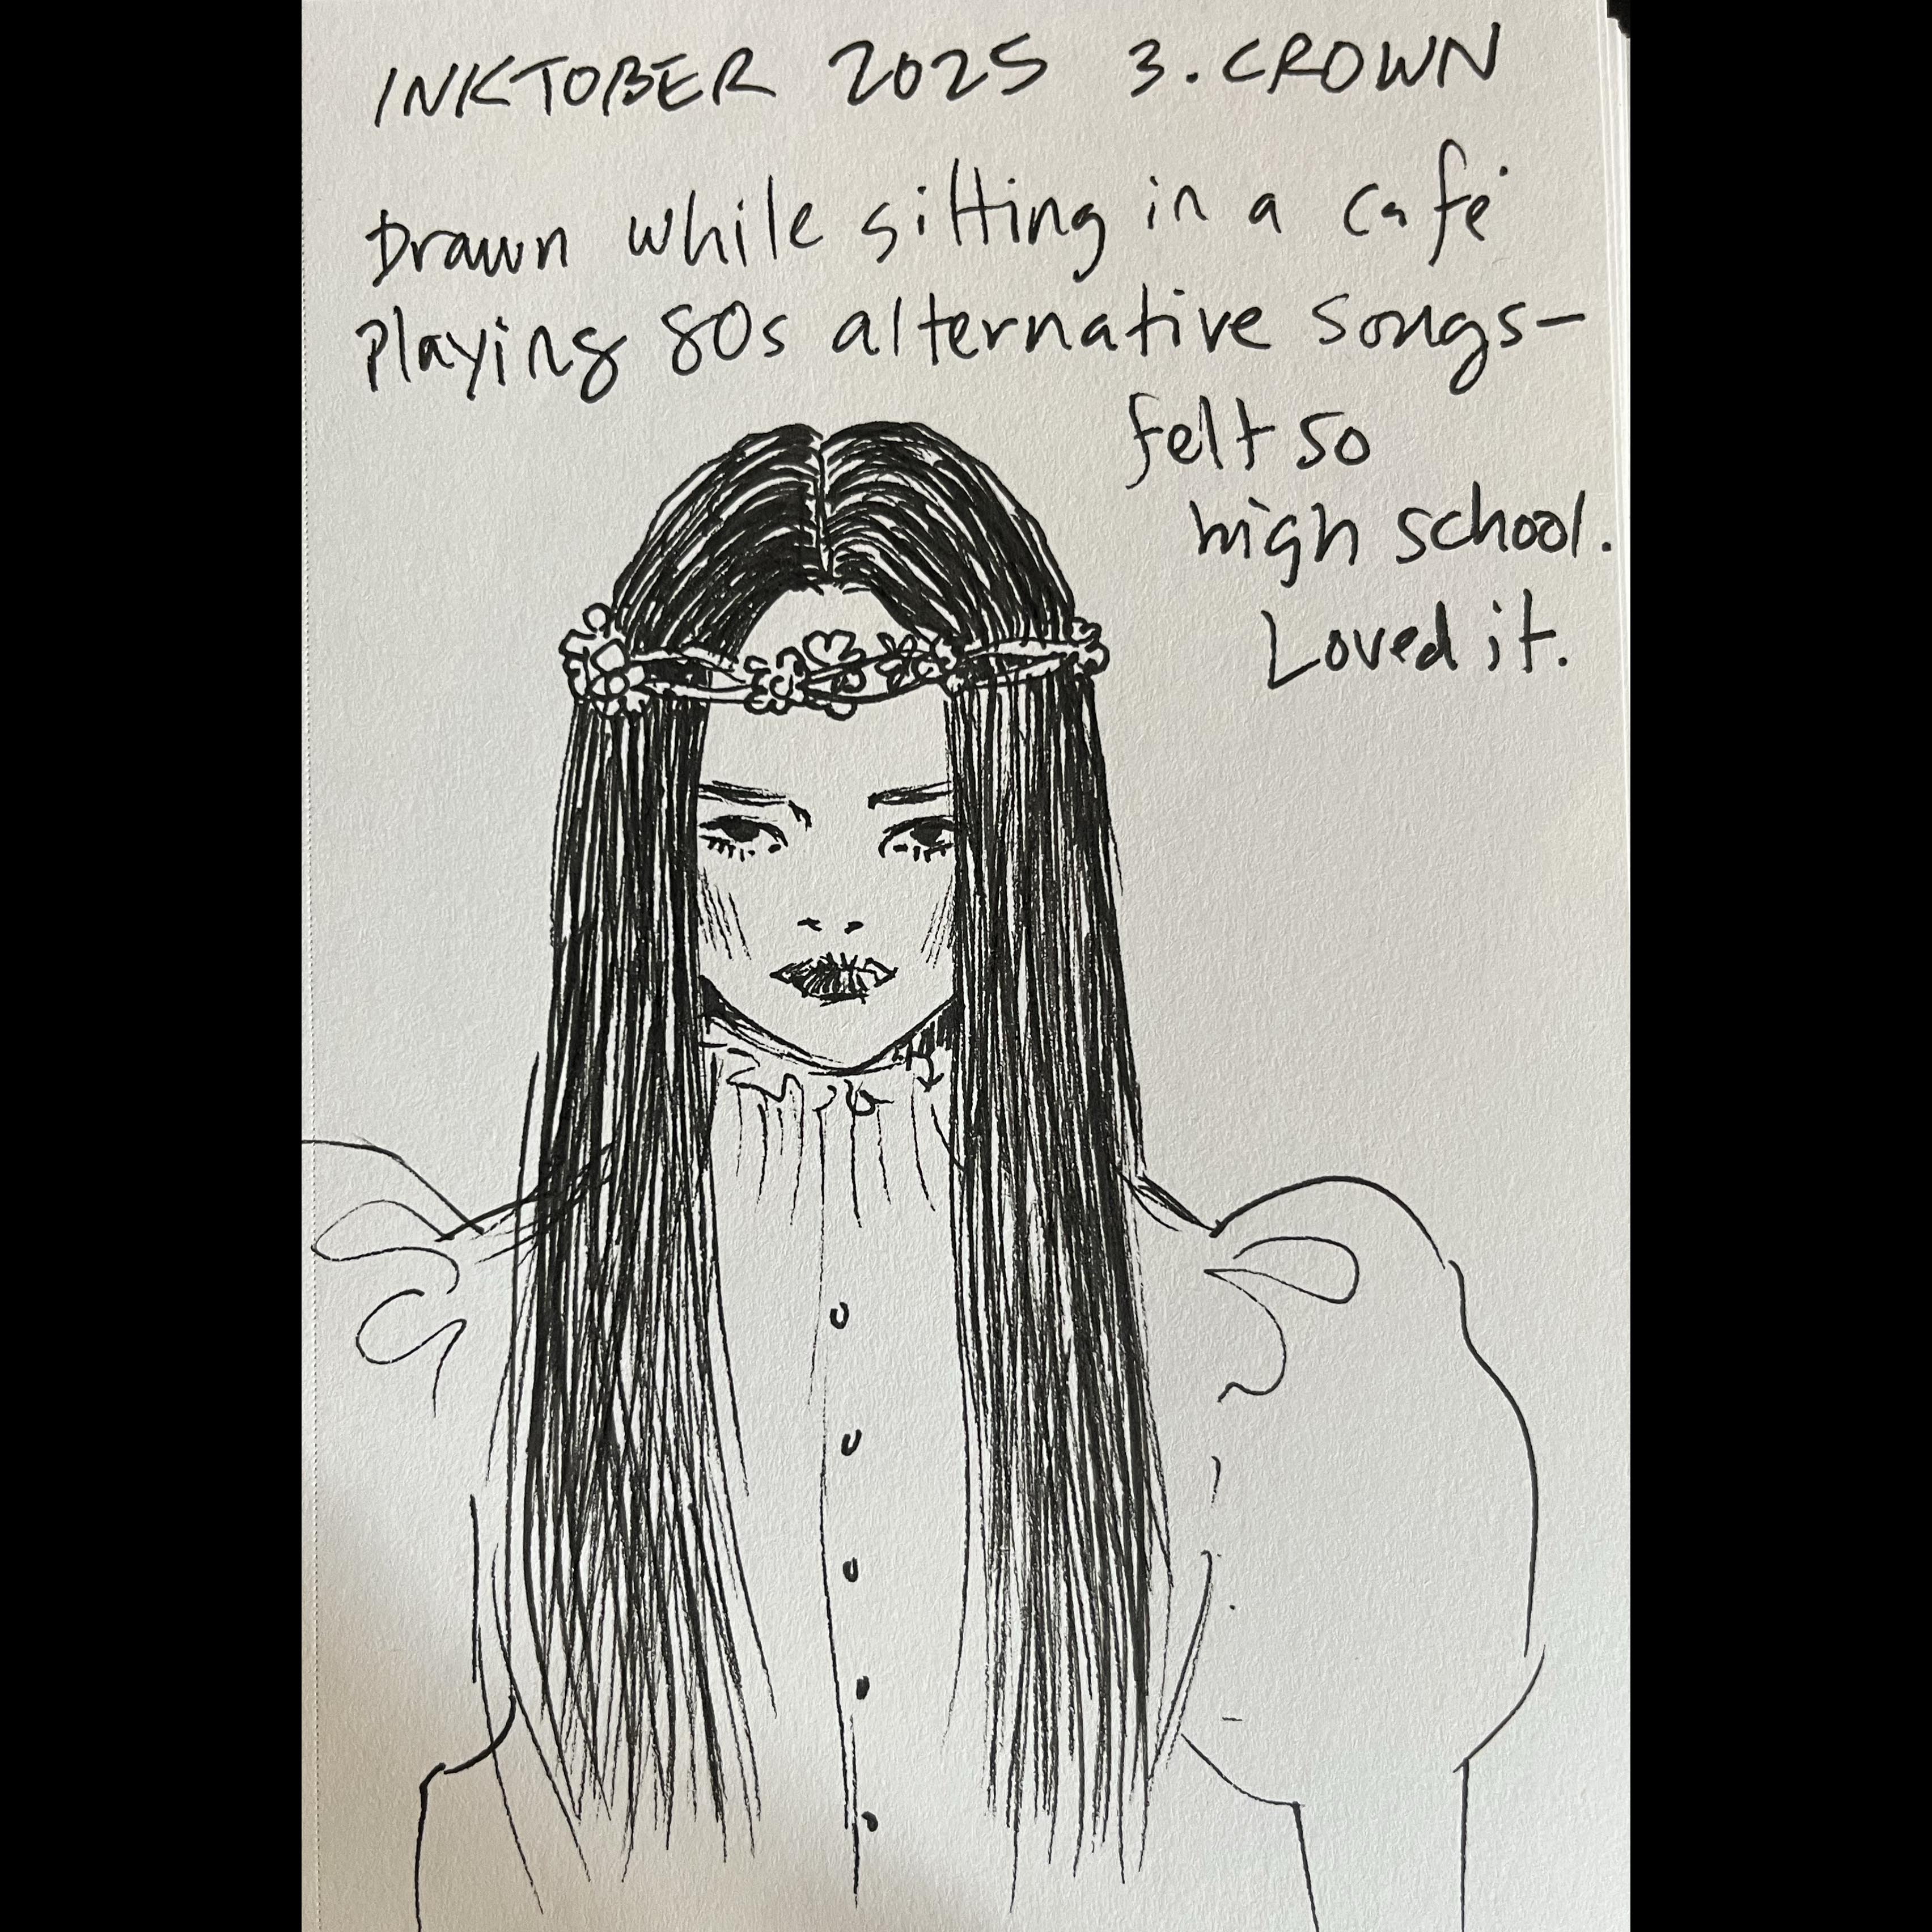 INKTOBER 2025 3. CROWN
Drawn while sitting in a café
Playing 80s alternative songs—
felt so
high school.
Loved it.